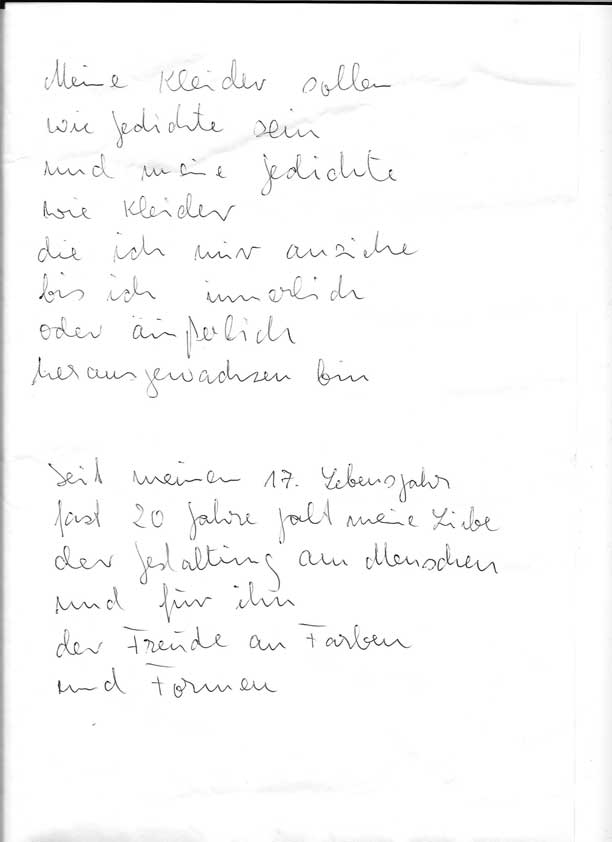 Meine Kleider sollen
wie Gedichte sein
und meine Gedichte
wie Kleider
die ich mir anziehe
bis ich innerlich
oder äußerlich
herausgewachsen bin
Seit meinem 17. Lebensjahr
fast 20 Jahre galt meine Liebe
der Gestaltung am Menschen
und für ihn
der Freude an Farben
und Formen